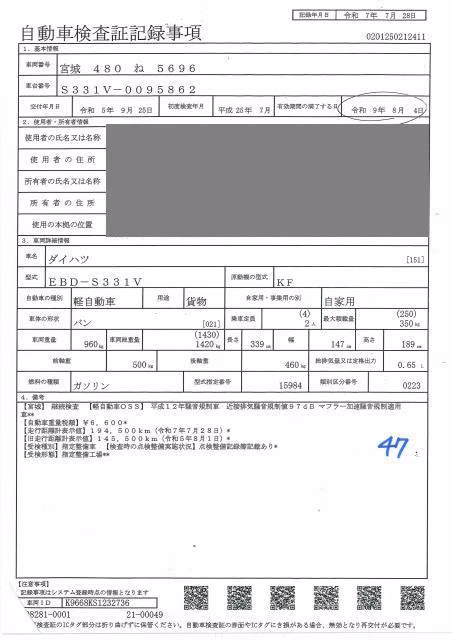 記録年月日 令和 7年 7月 28日
自動車検査証記録事項
0201250212411
1．基本情報
車両番号 宮城 480 ね 5696
車台番号 S331V-0095862
交付年月日 令和 5年 9月 25日 初度検査年月 平成 25年 7月 有効期間の満了する日 令和 9年 8月 4日
2．使用者・所有者情報
使用者の氏名又は名称
使用者の住所
所有者の氏名又は名称
所有者の住所
使用の本拠の位置
3．車両詳細情報
車名 ダイハツ [151]
型式 EBD-S331V 原動機の型式 KF
自動車の種別 軽自動車 用途 貨物 自家用・事業用の別 自家用
車体の形状 バン [021] 乗車定員 (4) 2人 最大積載量 (250) 350kg
車両重量 960kg 車両総重量 (1430) 1420kg 長さ 339cm 幅 147cm 高さ 189cm
前軸重 500kg 後軸重 460kg 総排気量又は定格出力 0.65 L
燃料の種類 ガソリン 型式指定番号 15984 類別区分番号 0223
4．備考
【宮城】 継続検査 【軽自動車OSS】 平成12年騒音規制車 近接排気騒音規制値97dB マフラー加速騒音規制適用
車**
【自動車重量税額】¥6,600*
【走行距離計表示値】194,500km（令和7年7月28日）*
【旧走行距離計表示値】145,500km（令和5年8月1日）*
【受検種別】指定整備車 【検査時の点検整備実施状況】点検整備記録簿記載あり*
【受検形態】指定整備工場**
47
【注意事項】
記録事項はシステム登録時点の情報となります
車両ID K9668KS1232736
08281-0001 21-00049
検査証のICタグ部分は折り曲げずに保管ください。自動車検査証の券面やICタグにき損がある場合、無効となり再交付が必要です。